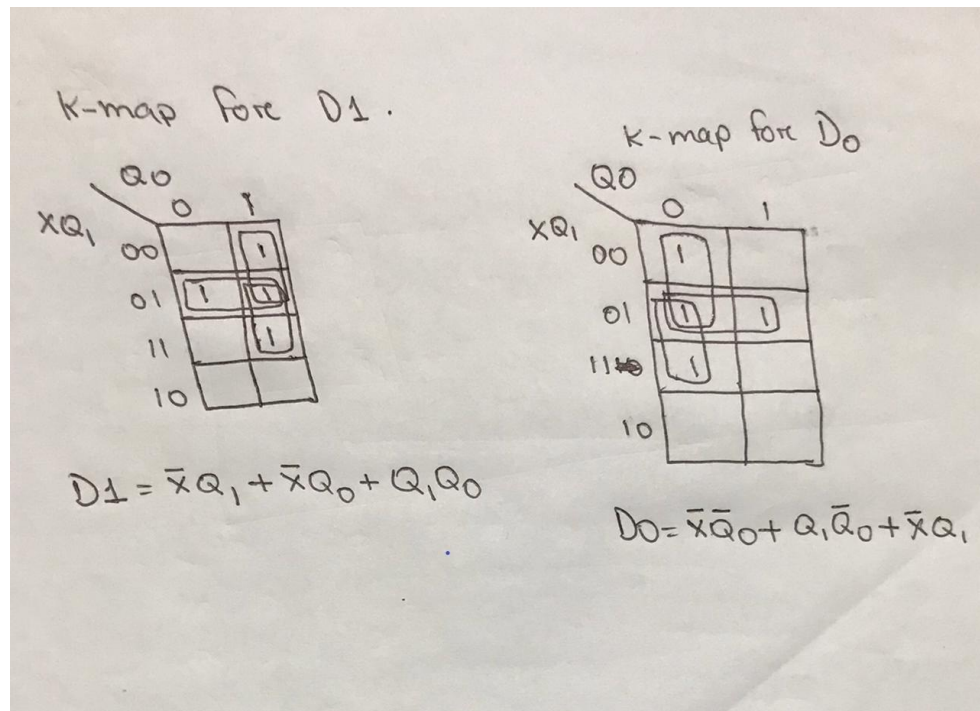 K-map fore D1.
Q0
0 1
XQ₁
00 1
01 1 1
11 1
10
D1 = X̄Q₁ + X̄Q₀ + Q₁Q₀
K-map fore D₀
Q0
0 1
XQ₁
00 1
01 1 1
11 1
10
D0 = X̄Q̄₀ + Q₁Q̄₀ + X̄Q₁